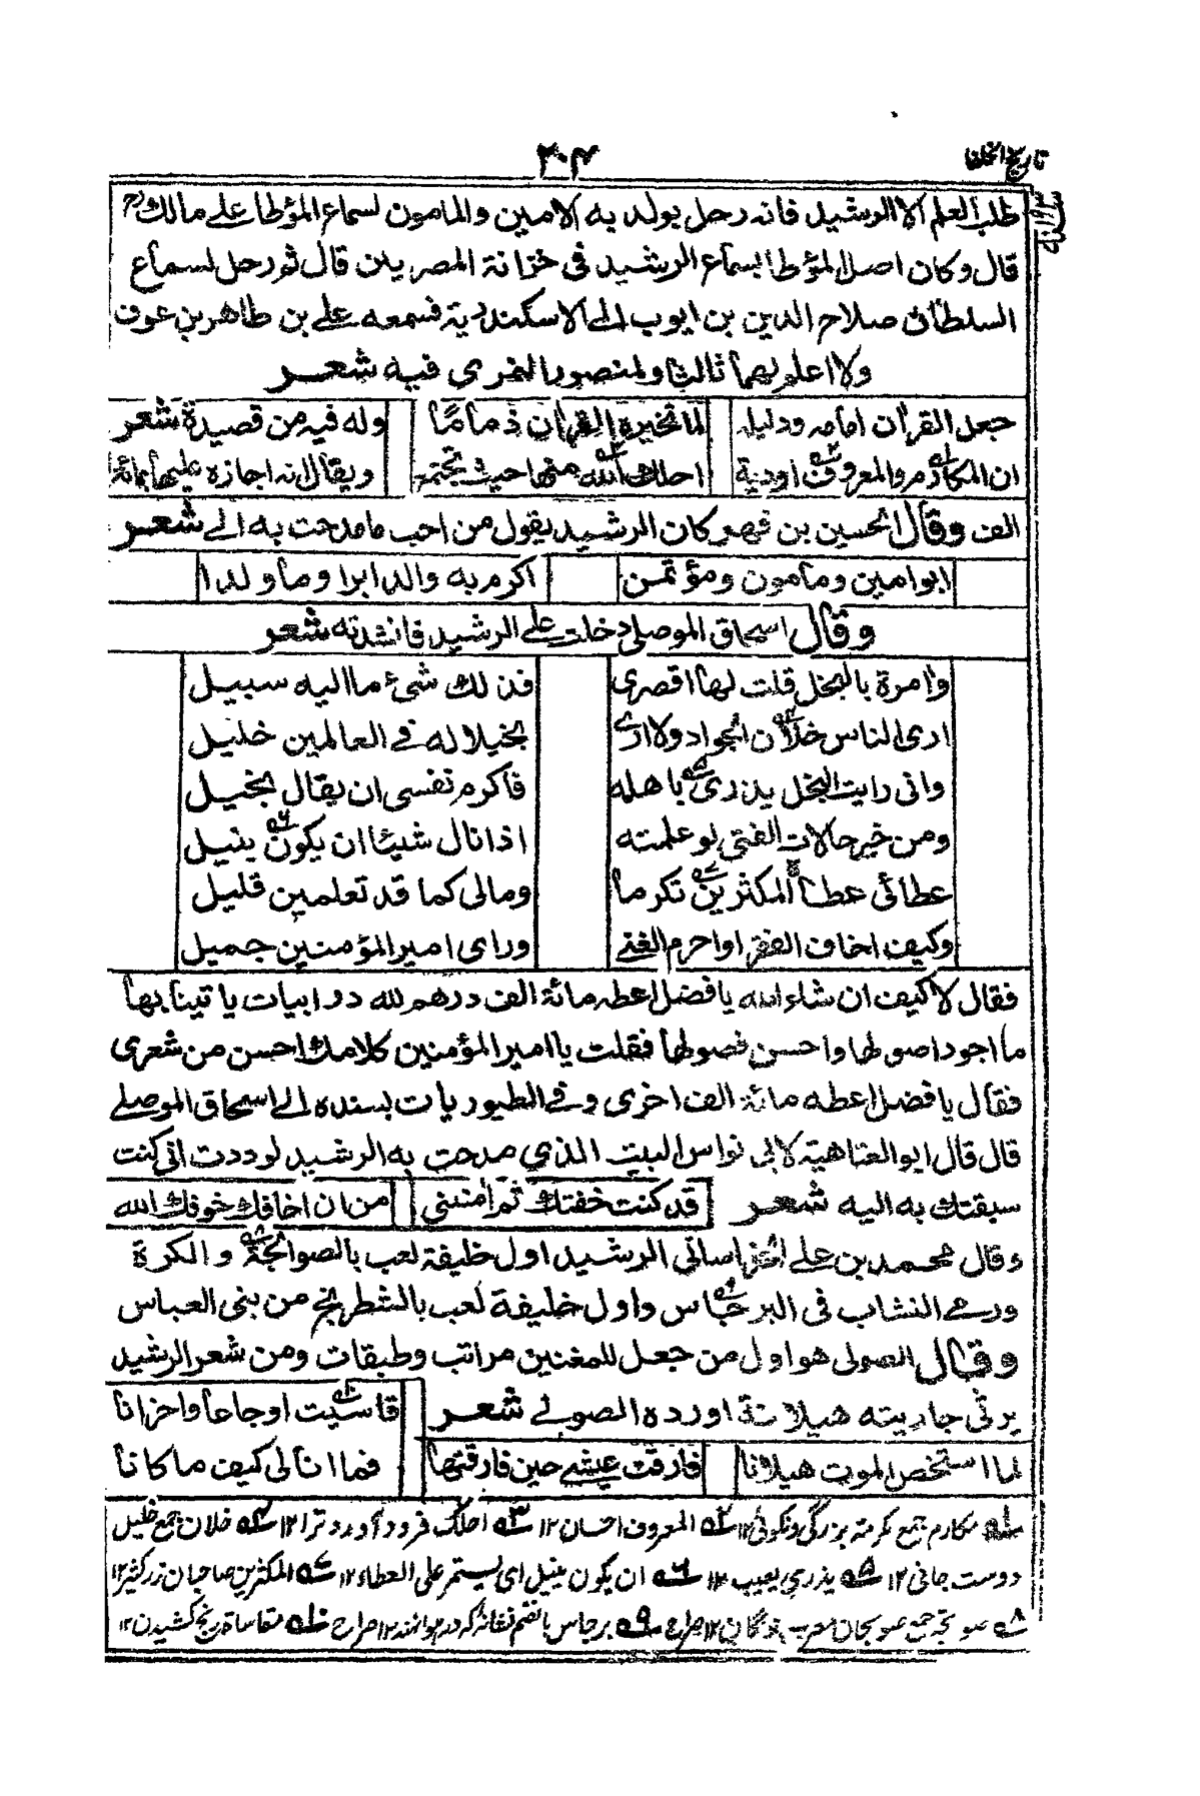 تاريخ الخلفا
٣٠٤
طلب العلم الا الرشيد فانه رحل بولديه الامين والمامون لسماع المؤطا على مالك رح
قال وكان اصل المؤطا بسماع الرشيد فى خزانة المصريين قال ثم رحل لسماع
السلطان صلاح الدين بن ايوب الى الاسكندرية فسمعه على بن طاهر بن عوف
ولا اعلم لهما ثالثا ولمنصور النمرى فيه شعر
جعل القرأن امامه ودليله لما تخيره القرأن ذماما وله فيه من قصيدة شعر
ان المكارم والمعروف اودية احلك الله منها حيث تجتمع ويقال انه اجازه عليها بمائة
الف وقال الحسين بن فهم كان الرشيد يقول من احب ما مدحت به الى شعر
ابو امين ومأمون ومؤتمن اكرم به والدا برا وما ولدا
وقال اسحاق الموصلى دخلت على الرشيد فانشدته شعر
وامرة بالبخل قلت لها اقصرى فذلك شئ ما اليه سبيل
ارى الناس خلان الجواد ولا ارى بخيلا له فى العالمين خليل
وانى رايت البخل يزرى باهله فاكرم نفسى ان يقال بخيل
ومن خير حالات الفتى لو علمته اذا نال شيئا ان يكون ينيل
عطائى عطاء المكثرين تكرما ومالى كما قد تعلمين قليل
وكيف اخاف الفقر او احرم الغنى وراى امير المؤمنين جميل
فقال لا كيف ان شاء الله يا فضل اعطه مائة الف درهم لله در ابيات ياتينا بها
ما اجود اصولها واحسن فصولها فقلت يا امير المؤمنين كلامك احسن من شعرى
فقال يا فضل اعطه مائة الف اخرى وفى الطيوريات بسنده الى اسحاق الموصلى
قال قال ابو العتاهية لابى نواس البيت الذي مدحت به الرشيد لوددت انى كنت
سبقتك به اليه شعر قد كنت خفتك ثم امننى من ان اخافك خوفك الله
وقال محمد بن على الخراسانى الرشيد اول خليفة لعب بالصوالجة والكرة
ورمى النشاب فى البرجاس واول خليفة لعب بالشطرنج من بنى العباس
وقال الصولى هو اول من جعل للمغنين مراتب وطبقات ومن شعر الرشيد
يرثى جاريته هيلانة اورده الصولى شعر قاسيت اوجاعا واحزانا
لما استخص الموت هيلانا فارقت عيشى حين فارقتها فما انا لى كيف ما كانا
١ مكارم جمع مكرمة بزرگى ونكوئى ١٢ ٢ المعروف احسان ١٢ ٣ احلك فرود آورد ترا ١٢ ٤ خلان جمع خليل
دوست جانى ١٢ ٥ يزري يعيب ١٢ ٦ ان يكون ينيل اى يستمر على العطاء ١٢ ٧ المكثرين صاحبان زر كثير ١٢
٨ صوالجة جمع صولجان معرب چوگان ١٢ صراح ٩ برجاس بالضم نشانه كه در هوا نهند ١٢ صراح ١٠ مقاساة رنج كشيدن ١٢